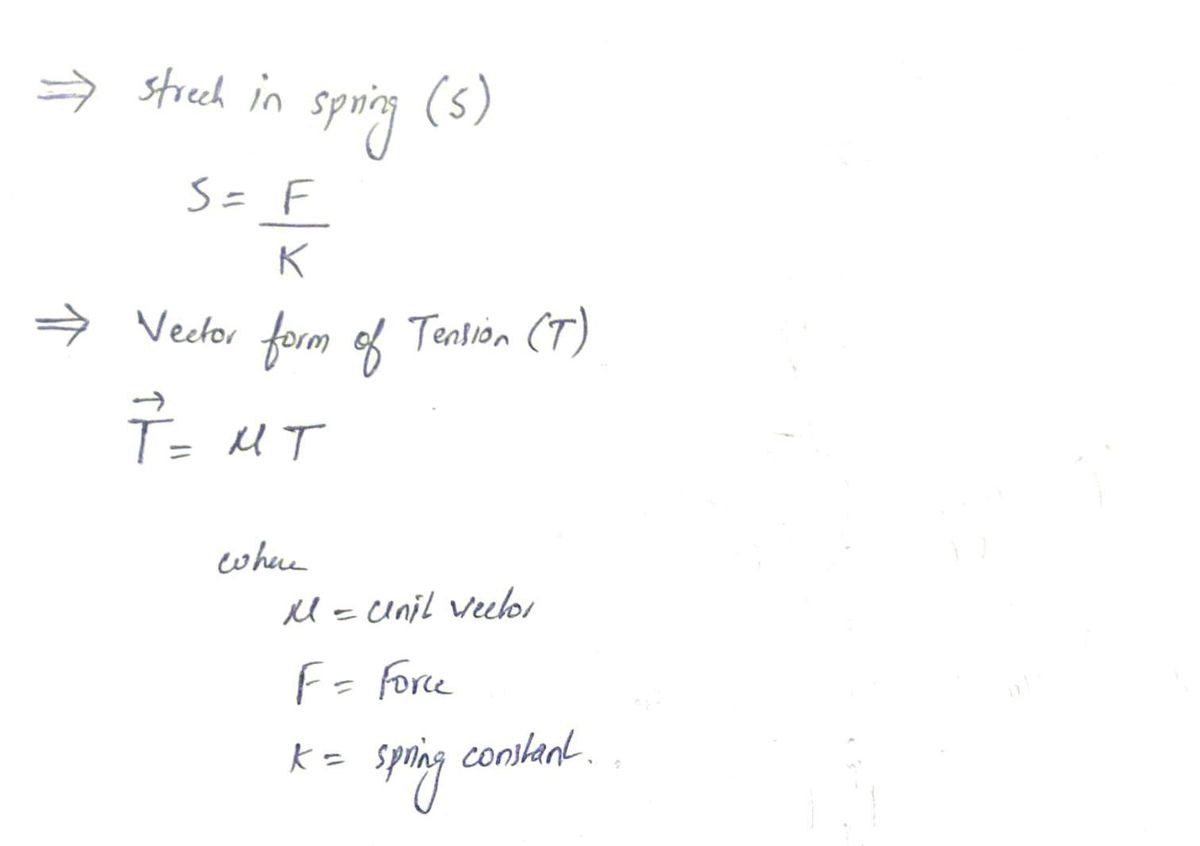 ⇒ strech in spring (s)
S = F
K
⇒ Vector form of Tension (T)
→
T = μ T
where
μ = unit vector
F = Force
K = spring constant.